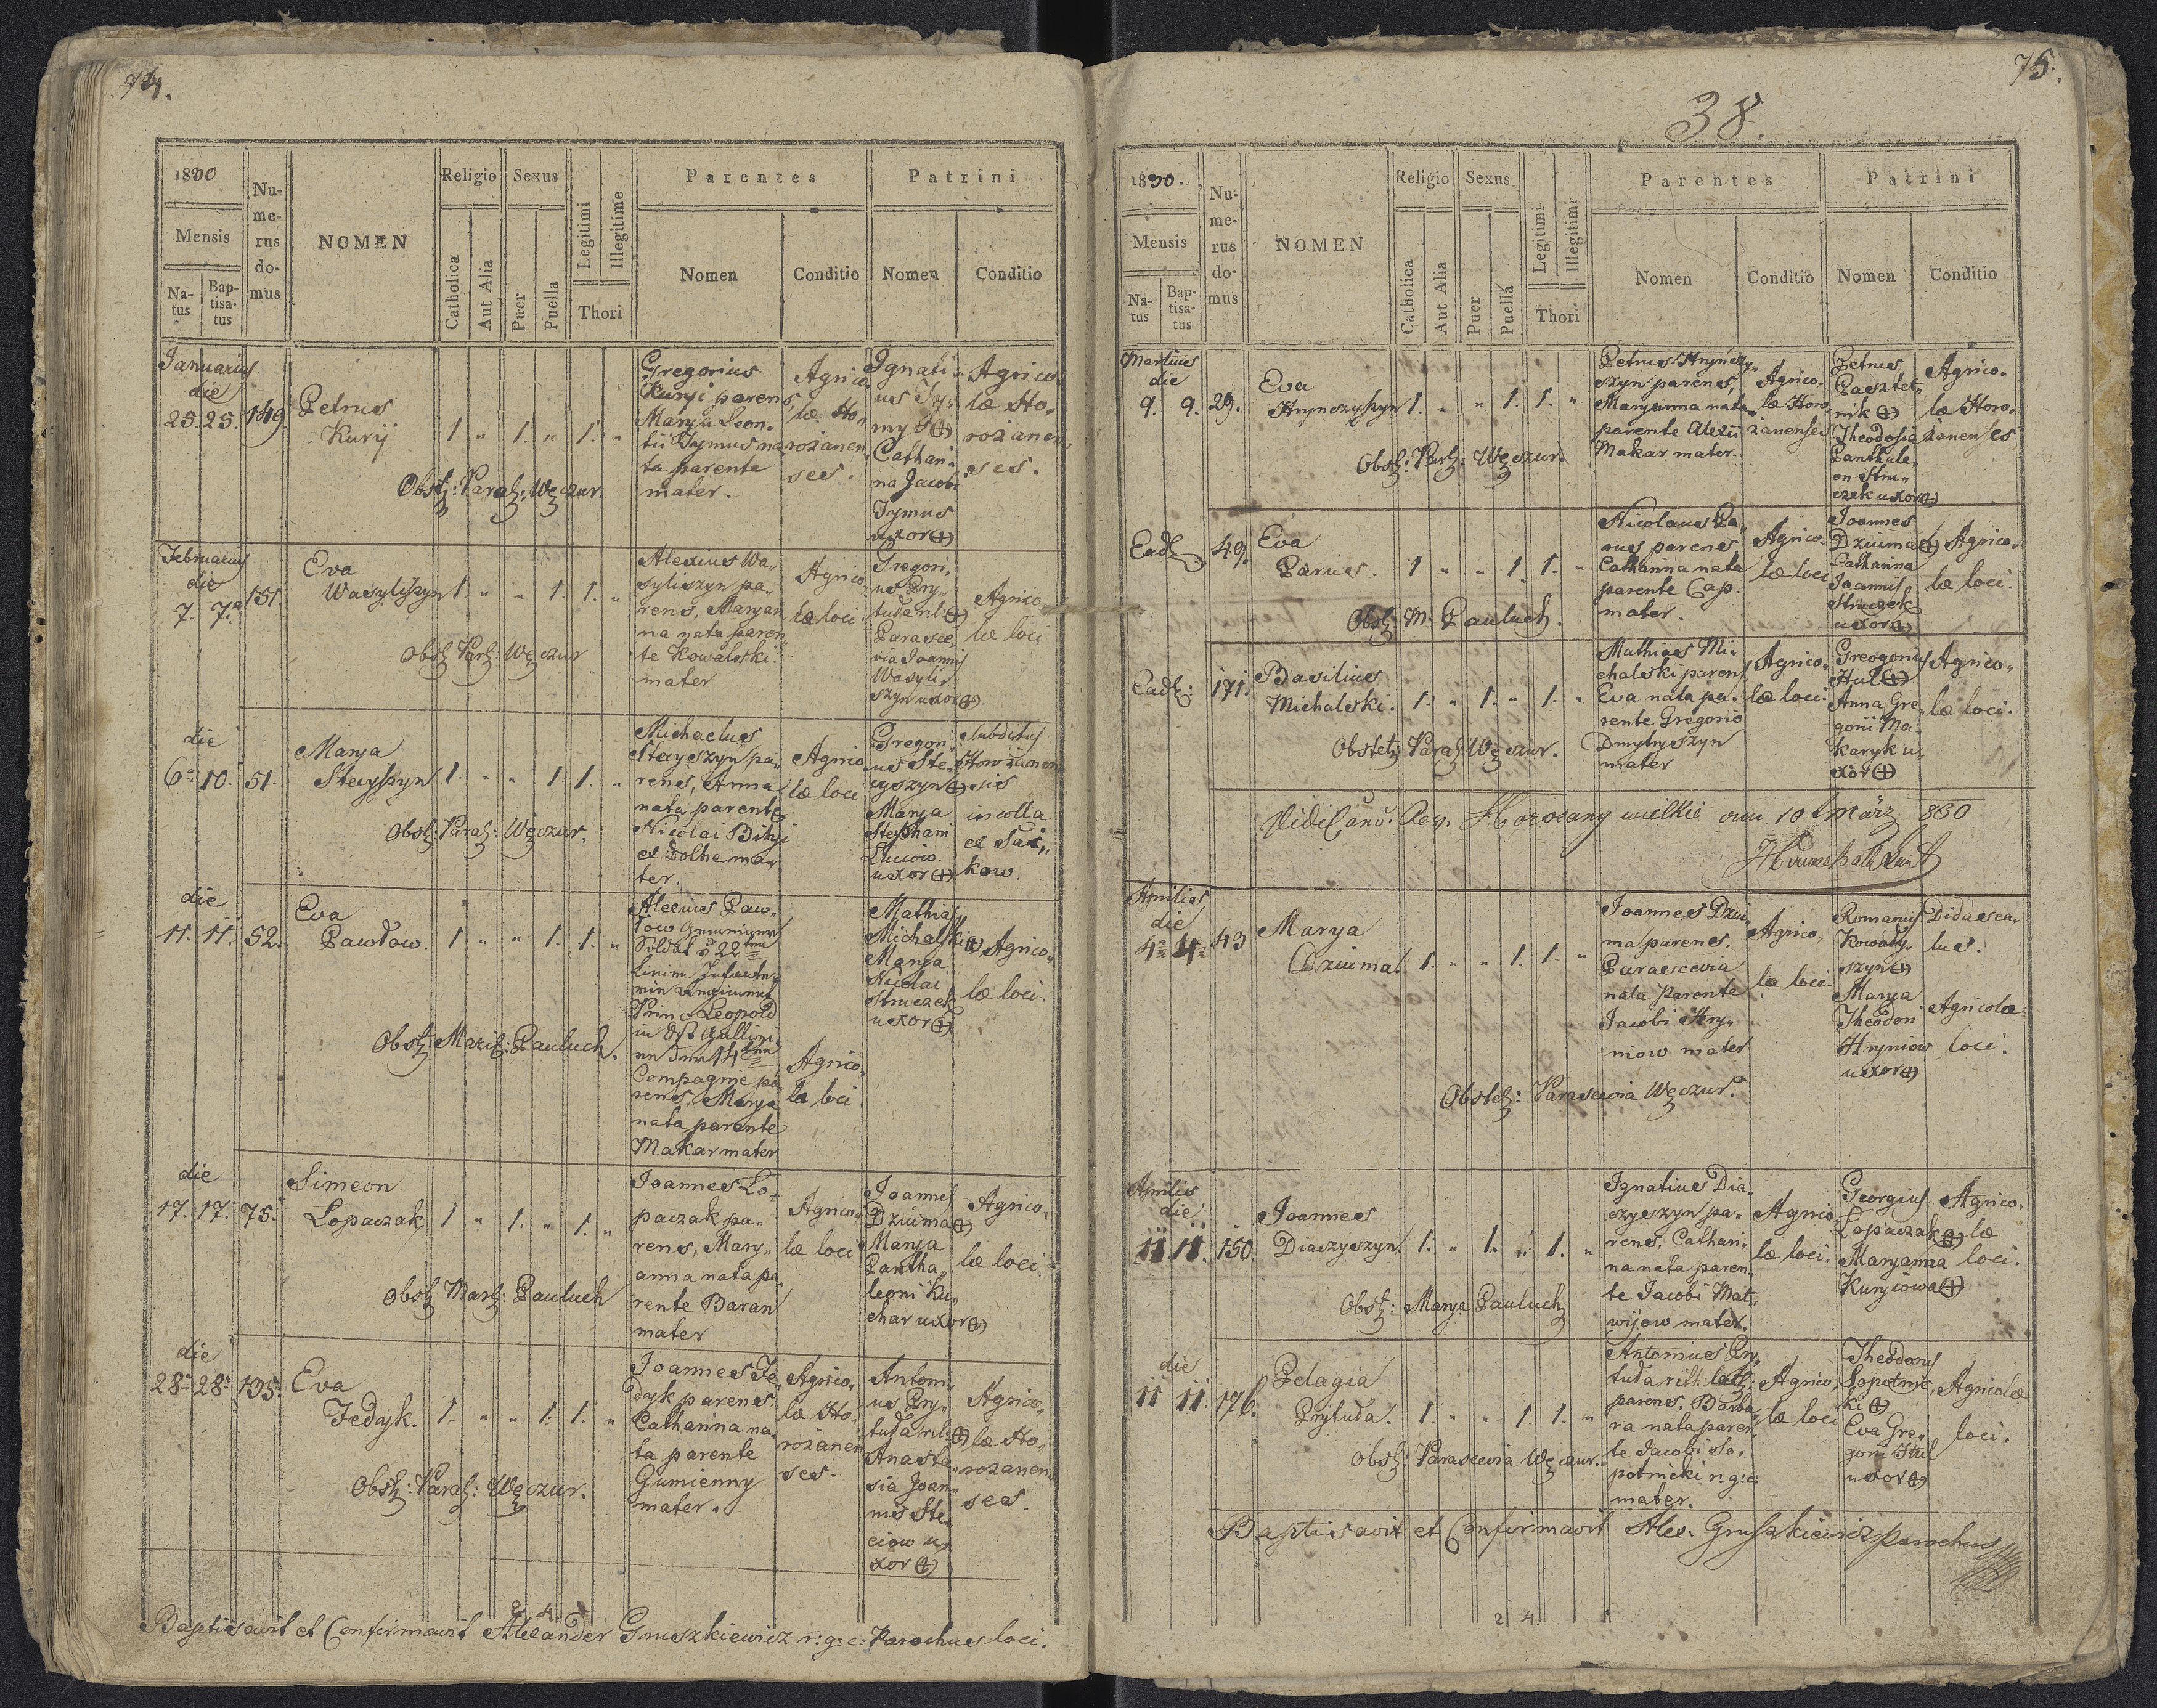 74.
1830
Mensis
Na-
tus
Bap-
tisa-
tus
Nu-
me-
rus
do-
mus
NOMEN
Religio
Catholica
Aut Alia
Sexus
Puer
Puella
Legitimi
Illegitime
Thori
Parentes
Nomen
Conditio
Patrini
Nomen
Conditio
Januarius
die
25. 25. 149.
Petrus
Kurij
1 " 1. " 1. "
Obst: Paras: Węczur.
Gregorius
Kuryi parens,
Marya Leon-
tii Tymus na
ta parente
mater.
Agrico
læ Ho,
rożanen
ses.
Ignati-
us Ty,
mus (+)
Cathari
na Jacobi
Tymus
uxor (+)
Agrico
læ Ho,
rożanen,
ses.
Februarius
die
7. 7. 151.
Eva
Wasyliszyn
1. " " 1. 1. "
Obst: Paras: Węczur
Alexius Wa-
syliszyn pa-
rens, Maryan
na nata paren
te Kowalski
mater
Agrico
læ loci
Gregori,
us Pry,
tuła rl: (+)
Parasce,
via Joannis
Wasyli,
szyn uxor (+)
Agrico
læ loci
die
6. 10. 51.
Marya
Stecyszyn
1. " " 1. 1. "
Obst: Paras: Węczur.
Michaelus
Stecyszyn pa-
rens, Anna
nata parente
Nicolai Bihij
ex Dolhe ma-
ter.
Agrico
læ loci
Gregori,
us Ste,
cyszyn (+)
Marya
Stephani
Luciow
uxor (+)
Subditus
Horożanen
sis
incolla
ex Sai,,
kow.
die
11. 11. 52.
Eva
Pawłow.
1 " " 1. 1. "
Obst: Maria: Pauluch.
Alexius Paw,
łow
Soldat 22
Linien
Prinz Leopold
in Ost Gallizi,
en 14
Compagnie pa
rens, Marya
nata parente
Makar mater
Agrico,
læ loci
Mathias
Michalski (+)
Marya
Nicolai
Struczek
uxor (+)
Agrico,
læ loci.
die
17. 17. 75.
Simeon
Łopaczak
1 " 1. " 1. "
Obst: Mary: Pauluch
Joannes Ło,
paczak pa,,
rens, Mary,,
anna nata pa
rente Baran
mater
Agrico,
læ loci
Joannes
Dziuma (+)
Marya
Pantha,
leoni Ku,
char uxor (+)
Agrico,
læ loci.
die
28. 28. 135.
Eva
Fedyk.
1. " " 1. 1. "
Obst: Paras: Węczur.
Joannes Fe,
dyk parens
Catharina na,
ta parente
Gumienny
mater.
Agrico,
læ Ho,
rożanen
ses.
Antoni,
us Pry,
tuła rl: (+)
Anasta,
sia Joan,
nis Ste,
ciow u,
xor (+)
Agrico,
læ Ho,
rożanen,
ses.
2 4.
Baptisavit et Confirmavit Alexander Gruszkiewicz r: g: c: Parochus loci.
75.
38.
1830.
Mensis
Na-
tus
Bap-
tisa-
tus
Nu-
me-
rus
do-
mus
NOMEN
Religio
Catholica
Aut Alia
Sexus
Puer
Puella
Legitimi
Illegitimi
Thori
Parentes
Nomen
Conditio
Patrini
Nomen
Conditio
Martius
die
9. 9. 29.
Eva
Hrynczyszyn
1. " " 1. 1. "
Obst: Paras: Węczur.
Petrus Hrynczy,,
szyn parens,
Maryanna nata
parente Alexii
Makar mater.
Agrico,
læ Horo,
żanenses
Petrus
Pasztet,
nik (+)
Theodosia
Panthale,
on Stru,,
czek uxor (+)
Agrico,
læ Horo,
żanenses
Ead: 49.
Eva
Parus.
1 " " 1. 1. "
Obst: M: Pauluch.
Nicolaus Pa,
rus parens
Catharina nata
parente Cap.
mater.
Agrico,
læ loci
Joannes
Dziuma (+)
Catharina
Joannis
Struczek
uxor (+)
Agrico,
læ loci.
Ead: 171.
Basilius
Michalski.
1. " 1. " 1. "
Obstet: Paras: Węczur.
Mathias Mi,
chalski parens
Eva nata pa,
rente Gregorio
Dmytryszyn
mater
Agrico,
læ loci.
Greogorius
Hul (+)
Anna Gre,
gorii Ma,
karyk u,
xor (+)
Agrico,,
læ loci.
Vidi Can: Reg. Horożany wielkie am 10 März 830
Aprilis
die
4. 4. 43
Marya
Dziuma.
1. " " 1. 1. "
Joannes Dziu,
ma parens.
Parascevia
nata Parente
Jacobi Hry,,
niow mater
Agrico,
læ loci.
Romanus
Kowały,
szyn (+)
Marya
Theodori
Hryniow
uxor (+)
Didasca,
lus.
Agricolæ
loci.
Obstet: Parascevia Węczur.
Aprilis
die
11. 11. 150.
Joannes
Diaczyszyn.
1. " 1. " 1. "
Obst: Marya Pauluch
Ignatius Dia,
czyszyn pa,
rens, Cathari,
na nata paren,
te Jacobi Mat,
wijow mater.
Agrico,
læ loci.
Georgius
Łopaczak (+)
Maryanna
Kuryiowa (+)
Agrico,
læ
loci.
die
11 11. 176.
Pelagia
Prytuła.
1. " " 1. 1. "
Obst: Parascevia Węczur.
Antonius Pry,
tuła rit: lat:
parens, Barba,
ra nata paren,
te Jacobi So,
potnicki r: g: c:
mater.
Agrico,
læ loci
Theodorus
Sopotnic,
ki (+)
Eva Gre,
gorii Hul
uxor (+)
Agricolæ
loci.
Baptisavit et Confirmavit Alex. Gruszkiewicz parochus
2 4.